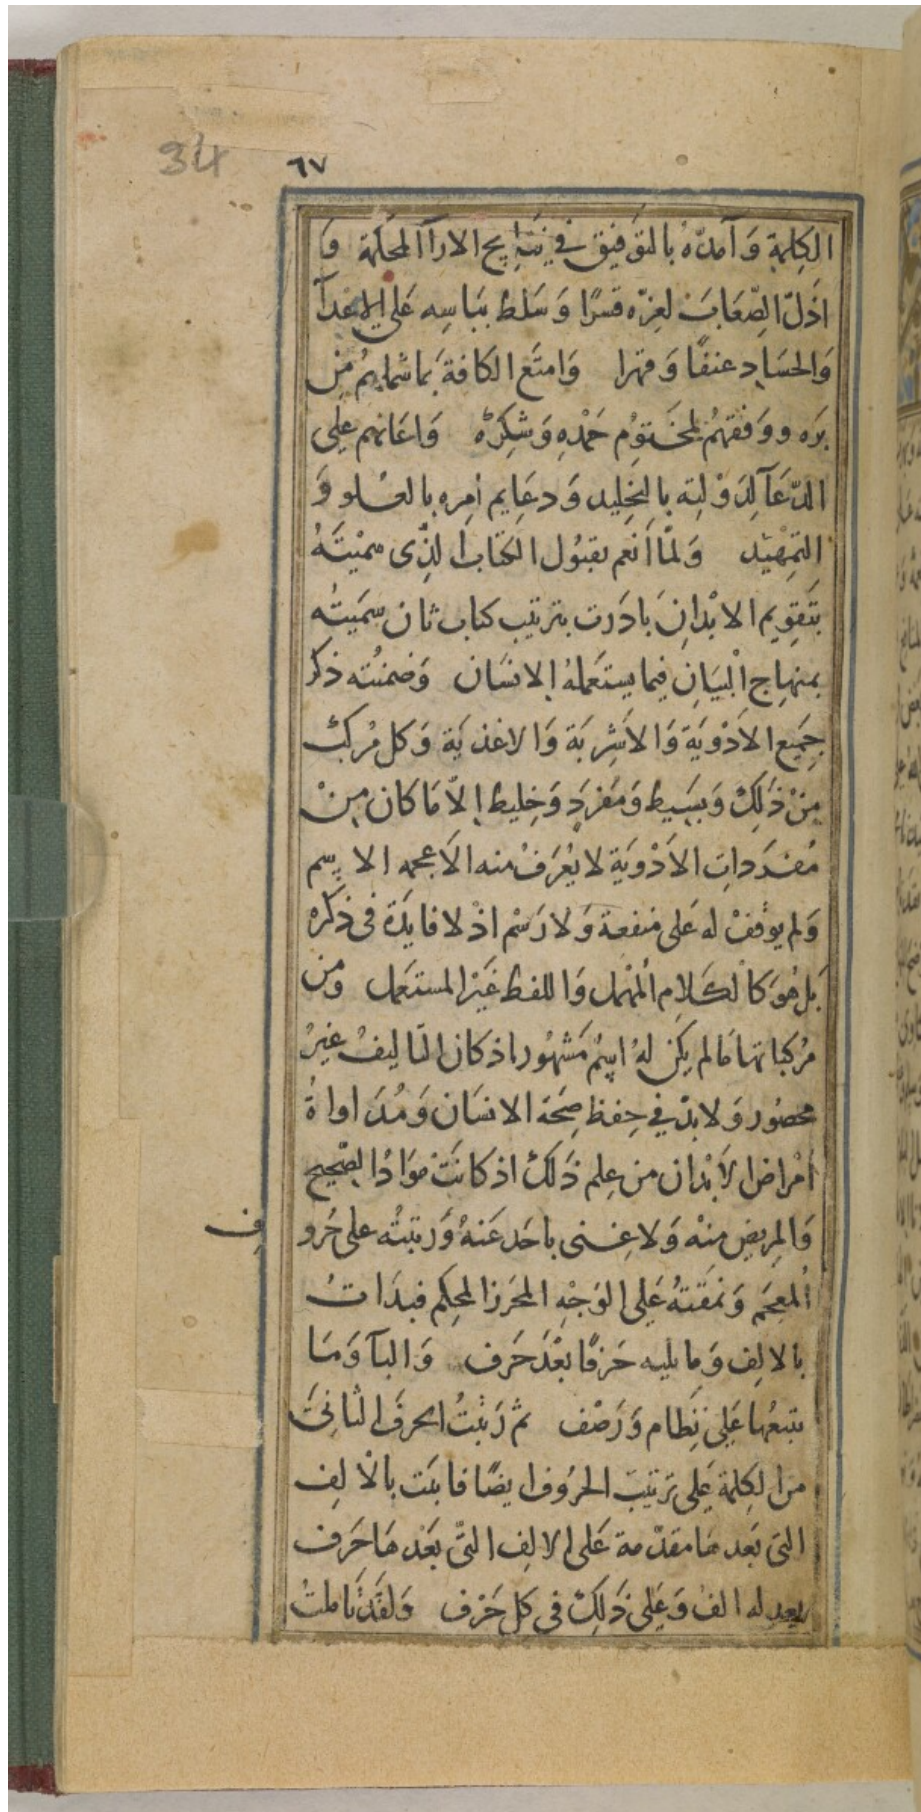 34
٦٧
الكِلمة وَآمدّهُ بالتوَفيق في نتَايج الاراآ المحلّة وَ
اذَلّ الصِّعَابَ لعِزّه قسرًا وَسَلط بَبَاسِه عَلى الاعدآ
وَالحسَاد عنفًا وَقهرا وَامتَع الكافة بَما شملهمُ مِن
برَه ووَفقهُم لمحَتوُم حَمْدِهِ وَشكِرهْ وَاعَانهم على
الدّعَآ لِدَوْلته بالتخليد وَدعَايم اُمِره بالعُلو وَ
التمِهْيَد وَلمّا أنعم بقبُول الكتابَ الذِّى سميْتَهُ
بتَقِويم الابْدانِ بَادَرت بترتيب كتاب ثان سَميَتُه
بمنهاج الْبيَانِ فيما يستَعملهُ الانسَان وَضمنُته ذكر
جَميَع الادْوَيَة وَالاشِربَة وَالاغذيَة وَكل مُركبّ
مِنْ ذَلِكَ وَبسَيط وَمفرَد وَخليط إلاّ مَا كان مِنْ
مُفردَاتِ الادْوَية لا يعُرَفُ منه الاَعجمه الا اسِم
وَلم يوُقفْ له عَلى منفعة وَلا رَسْم اذْ لا فايَدة فى ذكره
بَل هُوَ كالكَلامِ المُهْمل وَاللفظ غَيْر المستعَمل وَمن
مرُكباتها مَا لم يكنْ لهُ اسِمُ مَشهُور اذ كان التاليفُ غيرُ
محصُور وَلا بدّ في حِفظ صِحَة الانسَان وَمُدَاواةُ
اُمْراض الاَبْدان من عِلم ذَلكْ اذ كانَتْ موَادُ الصّحِيح
وَالمِريض منْه وَلا غِنى باحَد عَنهُ وَرتبتُه على حُرو
ف
المُعجَم وَنمقتهُ عَلى الوَجْهِ المحَرز المحِكم فبدَاتُ
بالالِف وَما يليه حَرفًا بعْدَ حَرف وَالبآ وَمَا
يتبعُها عَلى نِظام وَرَصْف ثم رَتبْتُ الحرفَ الثانىَ
من الكِلمة عَلى ترَتيب الحرُوف ايضًا فابتَت بالاَلِف
التى بَعدهَا مقدّمة عَلى الالِف التّى بَعدهَا حَرف
بعد له الفُ وَعلى ذَلِكَ فى كل حَرف وَلقَد تاملتُ